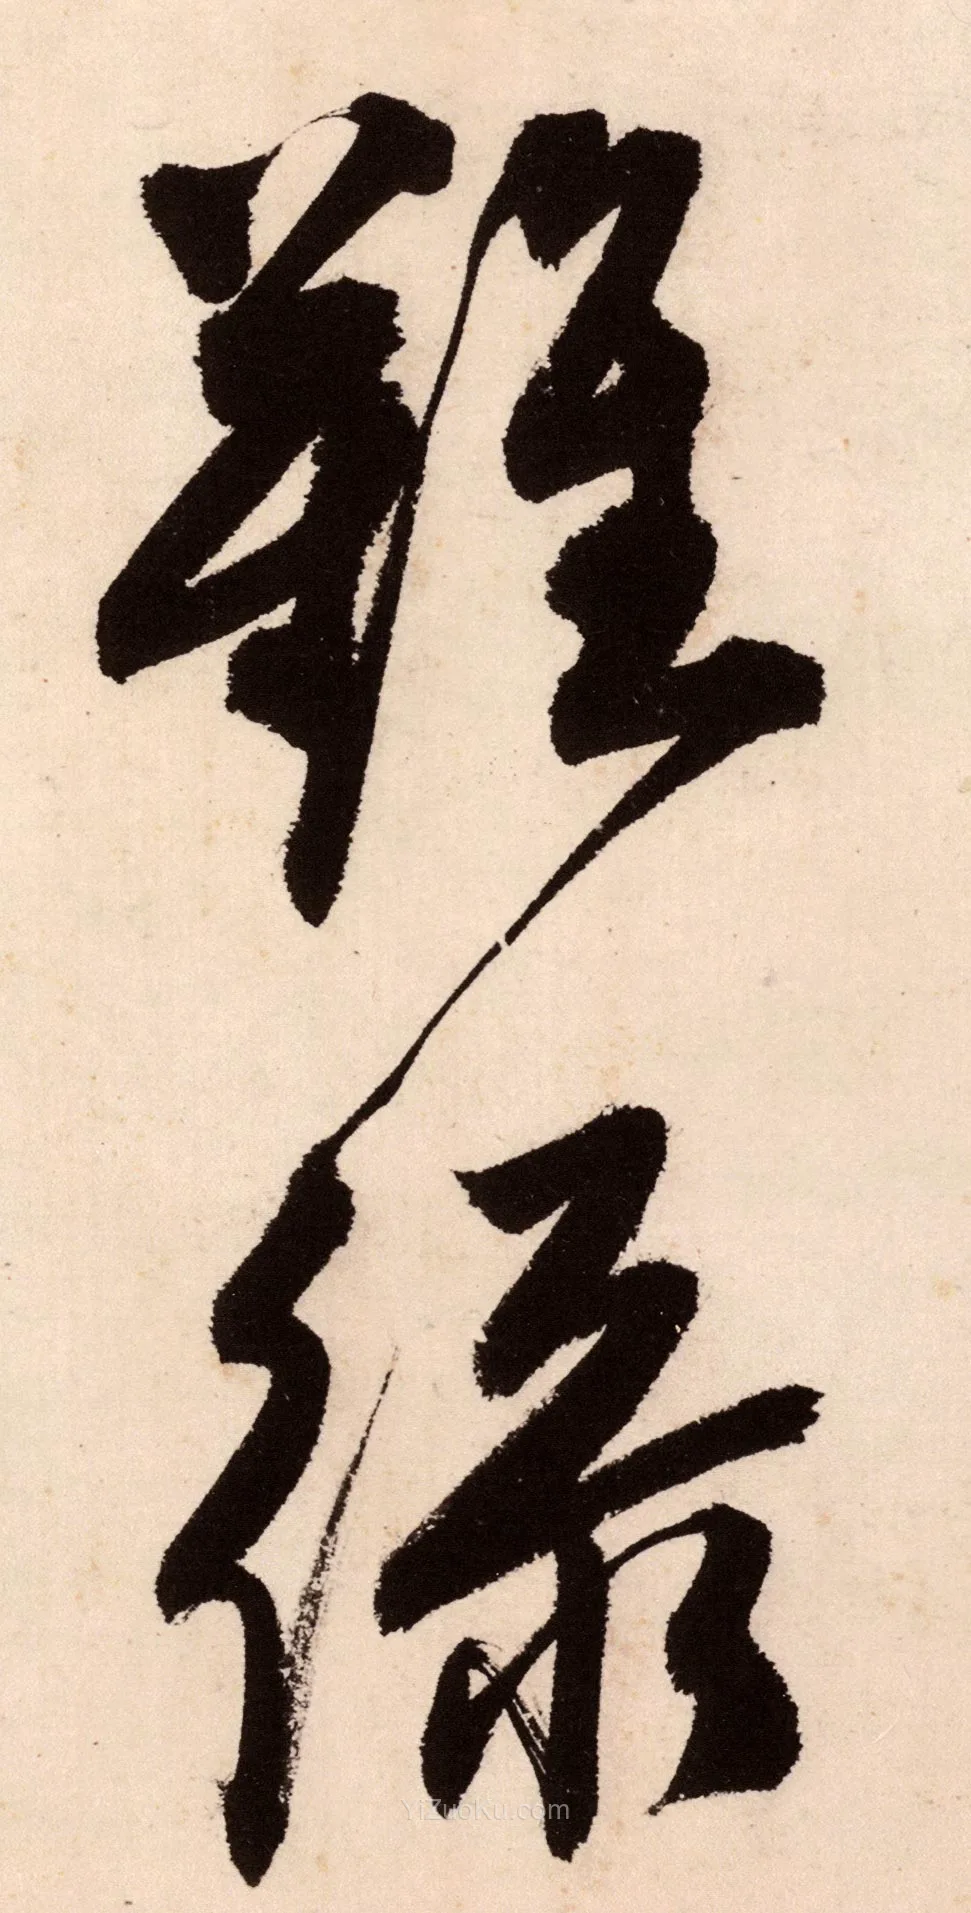 難
綠
YiZuoKu.com